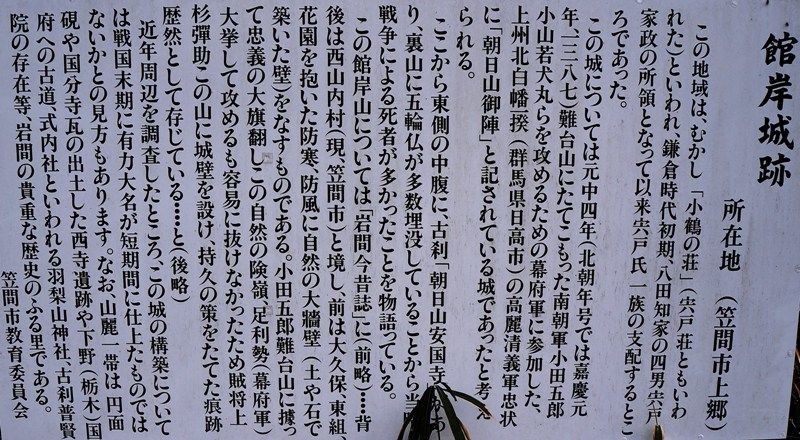 館岸城跡
所在地　(笠間市上郷)
この地域は、むかし「小鶴の荘」(宍戸荘ともいわ
れた)といわれ、鎌倉時代初期、八田知家の四男宍戸
家政の所領となって以来宍戸氏一族の支配するとこ
ろであった。
この城については元中四年(北朝年号では嘉慶元
年、一三八七)難台山にたてこもった南朝軍小田五郎
小山若犬丸らを攻めるための幕府軍に参加した、
上州北白幡一揆(群馬県日高市)の高麗清義軍忠状
に「朝日山御陣」と記されている城であったと考え
られる。
ここから東側の中腹に、古刹「朝日山安国寺
り、裏山に五輪仏が多数埋没していることから当
戦争による死者が多かったことを物語っている。
この館岸山については「岩間今昔誌」に(前略)……背
後は西山内村(現、笠間市)と境し、前は大久保、東組、
花園を抱いた防寒、防風に自然の大牆壁(土や石で
築いた壁)をなすものである。小田五郎難台山に據っ
て忠義の大旗翻しこの自然の険嶺、足利勢(幕府軍)
大挙して攻めるも容易に抜けなかったため賊将上
杉彈助この山に城壁を設け、持久の策をたてた痕跡
歴然として存じている……と(後略)
近年周辺を調査したところ、この城の構築について
は戦国末期に有力大名が短期間に仕上たものでは
ないかとの見方もあります。なお、山麓一帯は円面
硯や国分寺瓦の出土した西寺遺跡や下野(栃木)国
府への古道、式内社といわれる羽梨山神社、古刹普賢
院の存在等、岩間の貴重な歴史のふる里である。
笠間市教育委員会